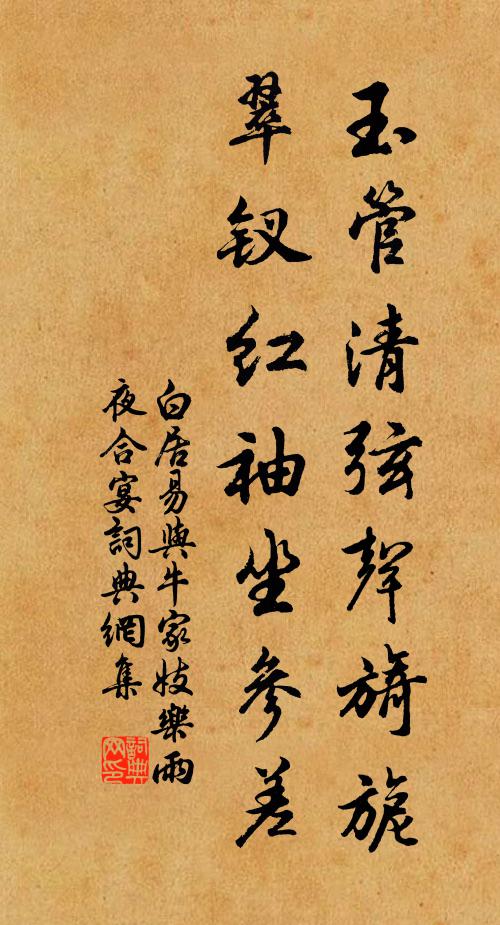 玉管清弦聲旖旎
翠釵紅袖坐參差
白居易與牛家妓樂雨
夜合宴詞典網集
詞典
网印